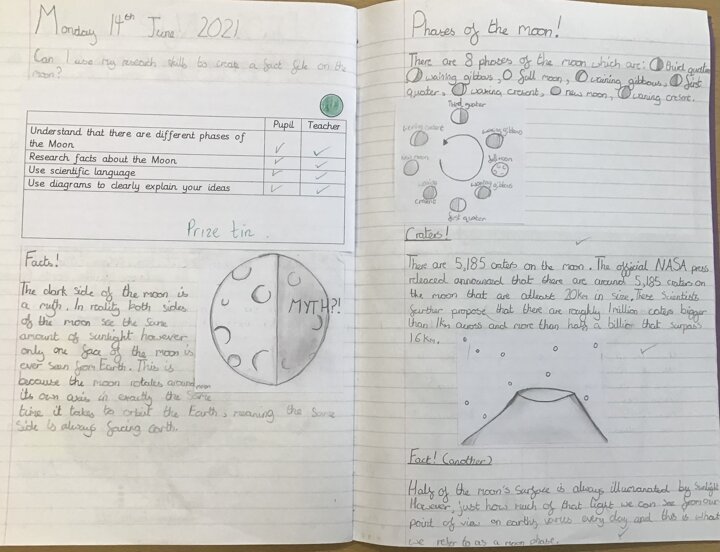 Monday 14th June 2021
Can I use my research skills to create a fact file on the
moon?
Pupil Teacher
Understand that there are different phases of
the Moon
Research facts about the Moon
Use scientific language
Use diagrams to clearly explain your ideas
Prize tin.
Facts!
The dark side of the moon is
a myth. In reality both sides
of the moon see the same
amount of sunlight however,
only one face of the moon is
ever seen from Earth. This is
because the moon rotates around
its own axis in exactly the same
time it takes to orbit the Earth, meaning the same
side is always facing earth.
MYTH?!
Phases of the moon!
There are 8 phases of the moon which are: third quater
waining gibbous, full moon, waining gibbous, first
quater, waxing cresent, new moon, waring
Third quater
gibbous
new moon
full moon
gibbous
first quater
Craters!
There are 5,185 craters on the moon. The official NASA press
released announced that there are around 5,185 craters on
the moon that are atleast 20Km in size. These Scientists
further propose that there are roughly 1 million craters bigger
than 1Km across and more than half a billion that surpass
1 6 Km.
Fact! (another)
Half of the moon's surface is always illumanated by sunlight
However, just how much of that light we can see from our
point of view on earth, varies every day and this is what
we refer to as a moon phase.